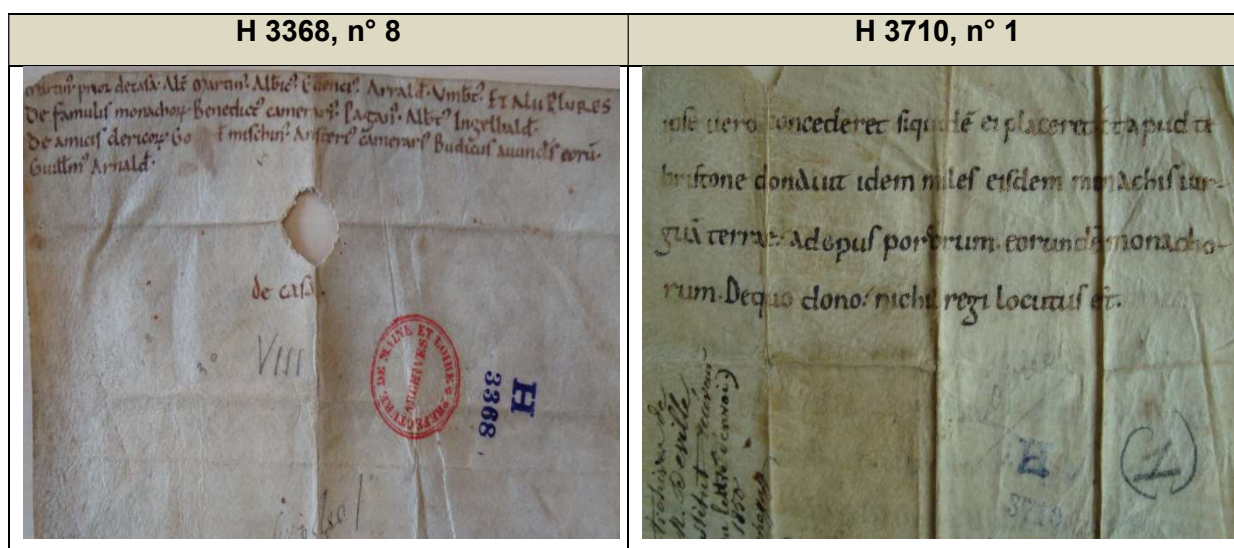 H 3368, n° 8
H 3710, n° 1
martin⁹ prior de casa. Alē martin⁹. Albic⁹. Arrald. Vmbt⁹. ET ALII PLURES
De famulis monachoꝝ. Benedict⁹ camerari⁹. Pagan⁹. Albt⁹ Ingelbald.
De amicis clericoꝝ. mischin⁹. camerari⁹ Budicus auuncls eorū.
Guillm⁹ Arnald.
de casa
VIII
PREFECTURE DE MAINE ET LOIRE
ARCHIVES
H
3368
ipse uero concederet siquidē ei placeret. Et apud te
bristone donauit idem miles eisdem monachis uir-
guā terrae. ad opus porcorum. eorundē monacho-
rum. De quo dono. nichil regi locutus est.
M. Deville
lettre
H
3710
(1)